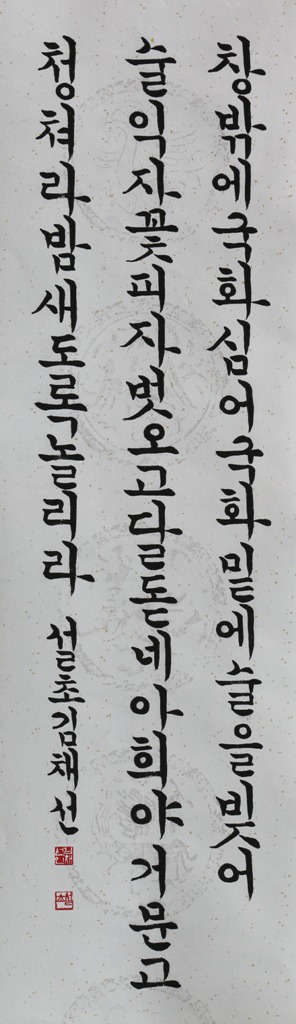 창밖에국화심어국화밑에술을빚어
술익자꽃피자벗오고달돋네아희야거문고
청쳐라밤새도록놀리라 설초김채선